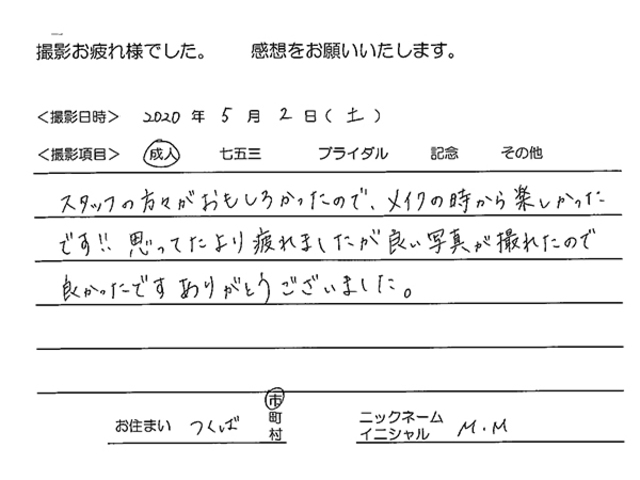 撮影お疲れ様でした。　感想をお願いいたします。
＜撮影日時＞ 2020 年 5 月 2 日（土）
＜撮影項目＞ 成人 七五三 ブライダル 記念 その他
スタッフの方々がおもしろかったので、メイクの時から楽しかった
です!! 思ってたより疲れましたが良い写真が撮れたので
良かったです ありがとうございました。
お住まい つくば 市
町
村
ニックネーム
イニシャル M.M